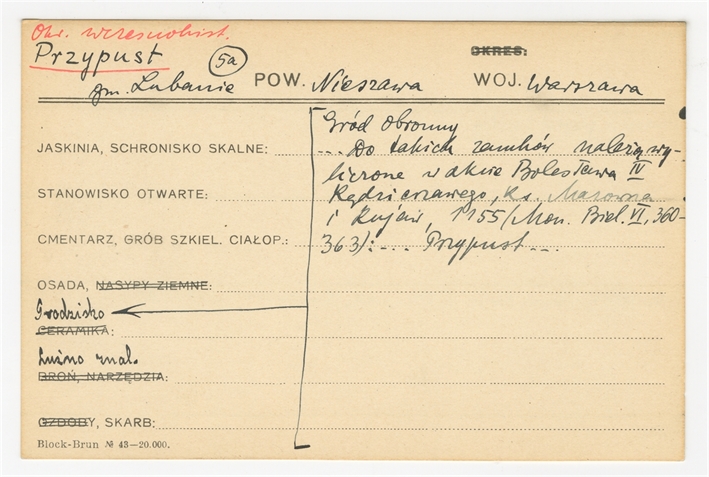 Okr. wczesnohist.
Przypust
5a
OKRES:
gm. Lubanie POW. Nieszawa WOJ. Warszawa
Gród obronny
JASKINIA, SCHRONISKO SKALNE: ... Do takich zamków należą wy-
liczone w akcie Bolesława IV
STANOWISKO OTWARTE: Kędzierzawego, ks. Mazowsza
i Kujaw, 1155 (Mon. Biel. VI, 360-
CMENTARZ, GRÓB SZKIEL. CIAŁOP.: 363): ... Przypust ...
OSADA, NASYPY ZIEMNE:
Grodzisko
CERAMIKA:
Luźno znal.
BROŃ, NARZĘDZIA:
OZDOBY, SKARB:
Block-Brun № 43—20.000.